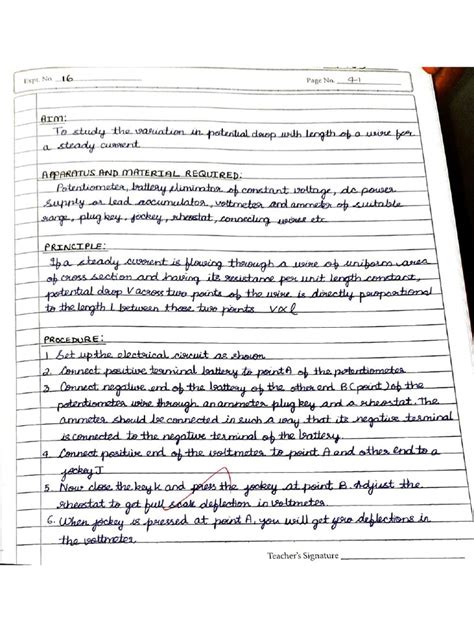 Expt. No. 16
Page No. 41
AIM:
To study the variation in potential drop with length of a wire for
a steady current
APPARATUS AND MATERIAL REQUIRED:
Potentiometer, battery eliminator of constant voltage, dc power
supply or lead accumulator, voltmeter and ammeter of suitable
range, plug key, jockey, rheostat, connecting wires etc
PRINCIPLE:
If a steady current is flowing through a wire of uniform area
of cross section and having its resistance per unit length constant,
potential drop V across two points of the wire is directly proportional
to the length l between those two points V∝l
PROCEDURE:
1. Set up the electrical circuit as shown
2. Connect positive terminal battery to point A of the potentiometer
3. Connect negative end of the battery of the other end B (point) of the
potentiometer wire through an ammeter plug key and a rheostat. The
ammeter should be connected in such a way that its negative terminal
is connected to the negative terminal of the battery
4. Connect positive end of the voltmeter to point A and other end to a
jockey J
5. Now close the key K and press the jockey at point B. Adjust the
rheostat to get full scale deflection in voltmeter.
6. When jockey is pressed at point A, you will get zero deflections in
the voltmeter
Teacher's Signature